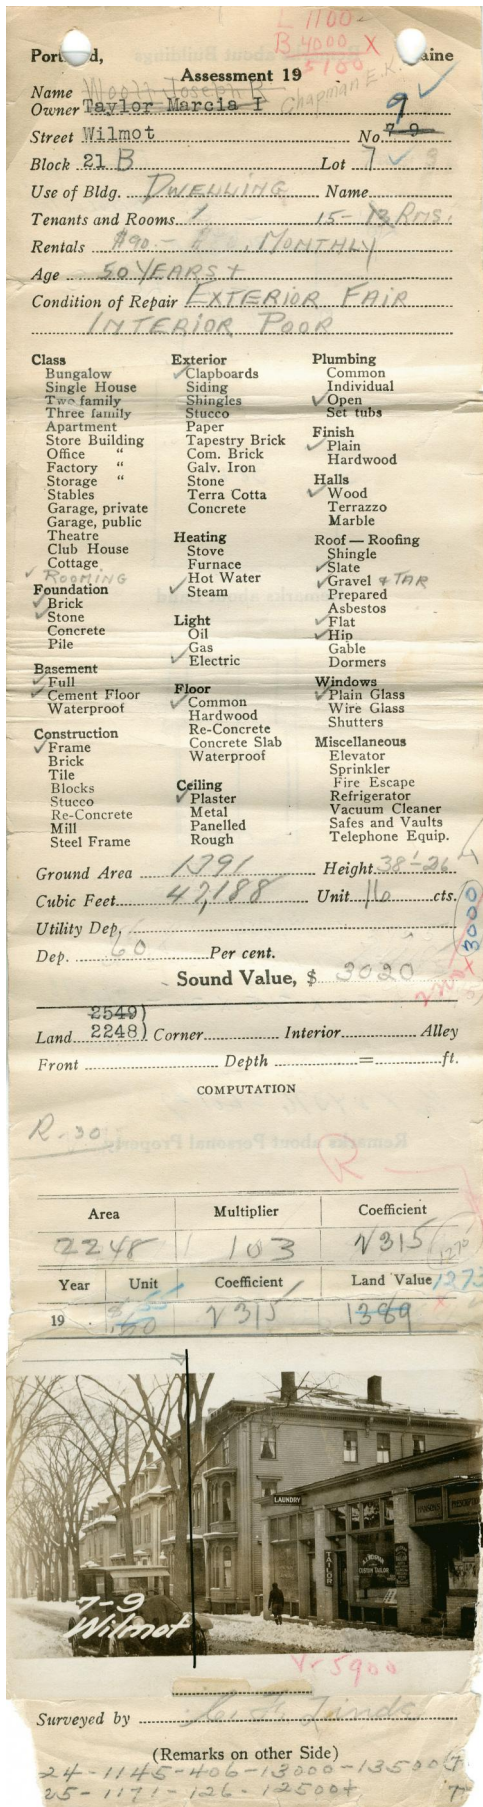 L 1100-
B 4000 X
5100
Portland, Maine
Assessment 19
Name Woolf Joseph B
Owner Taylor Marcia I Chapman E.K.
9 ✓
Street Wilmot No. 7-9
Block 21 B Lot 7 ✓
Use of Bldg. DWELLING Name
Tenants and Rooms 1 15- 13 RMS.
Rentals $90- MONTHLY
Age 50 YEARS +
Condition of Repair EXTERIOR FAIR
INTERIOR POOR
Class
Bungalow
Single House
Two family
Three family
Apartment
Store Building
Office "
Factory "
Storage "
Stables
Garage, private
Garage, public
Theatre
Club House
Cottage
✓ ROOMING
Foundation
✓ Brick
✓ Stone
Concrete
Pile
Basement
✓ Full
✓ Cement Floor
Waterproof
Construction
✓ Frame
Brick
Tile
Blocks
Stucco
Re-Concrete
Mill
Steel Frame
Exterior
✓ Clapboards
Siding
Shingles
Stucco
Paper
Tapestry Brick
Com. Brick
Galv. Iron
Stone
Terra Cotta
Concrete
Heating
Stove
Furnace
Hot Water
✓ Steam
Light
Oil
Gas
✓ Electric
Floor
✓ Common
Hardwood
Re-Concrete
Concrete Slab
Waterproof
Ceiling
✓ Plaster
Metal
Panelled
Rough
Plumbing
Common
Individual
✓ Open
Set tubs
Finish
✓ Plain
Hardwood
Halls
✓ Wood
Terrazzo
Marble
Roof — Roofing
Shingle
✓ Slate
✓ Gravel & TAR
Prepared
Asbestos
✓ Flat
✓ Hip
Gable
Dormers
Windows
✓ Plain Glass
Wire Glass
Shutters
Miscellaneous
Elevator
Sprinkler
Fire Escape
Refrigerator
Vacuum Cleaner
Safes and Vaults
Telephone Equip.
Ground Area 1391 Height 38'-26
Cubic Feet 47,188 Unit 16 cts.
Utility Dep.
Dep. 60 Per cent.
3000
Sound Value, $ 3020
2549)
Land 2248) Corner Interior Alley
Front Depth = ft.
COMPUTATION
R-30
R
Area Multiplier Coefficient
2248 103 V315
1275
Year Unit Coefficient Land Value 1273
19 . V315 1389
LAUNDRY
TAILOR
CUSTOM TAILOR
7-9
Wilmot
Vr 5900
Surveyed by
(Remarks on other Side)
24-1145-406-13000-13500
25-1171-126-12500+